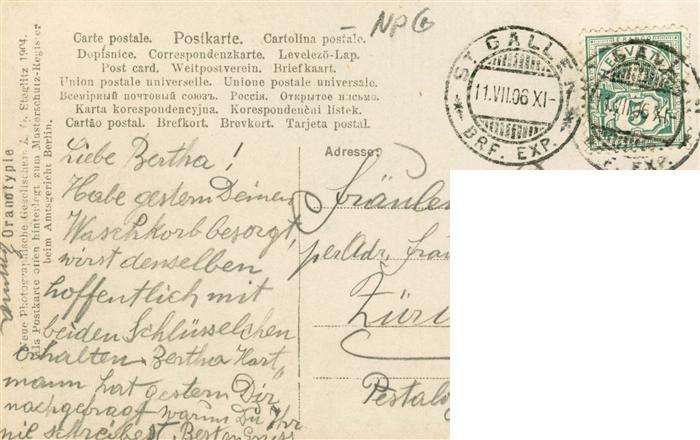 NPG
Carte postale. Postkarte. Cartolina postale.
Dopisnice. Correspondenzkarte. Levelező-Lap.
Post card. Weltpostverein. Briefkaart.
Union postale universelle. Unione postale universale.
Всемірный почтовый союзъ. Россія. Открытое письмо.
Karta korespondencyjna. Korespondenční lístek.
Cartão postal. Brefkort. Brevkort. Tarjeta postal.
ST GALLEN
11.VII.06 XI-
BRF. EXP.
Adresse:
Liebe Bertha!
Habe gestern Deinen
Waschkorb besorgt,
wirst denselben
hoffentlich mit
beiden Schlüsselchen
erhalten. Bertha Hart
mann hat gestern Dir
nachgefragt warum Du Ihr
nie schreibest. Besten Gruss
Fräulein
per Adr. Frau
Züri
Pestaloz
Oranotypie
Neue Photographische Gesellschaft A. G. Steglitz 1904.
als Postkarte offen hinterlegt zum Musterschutz-Register
beim Amtsgericht Berlin.